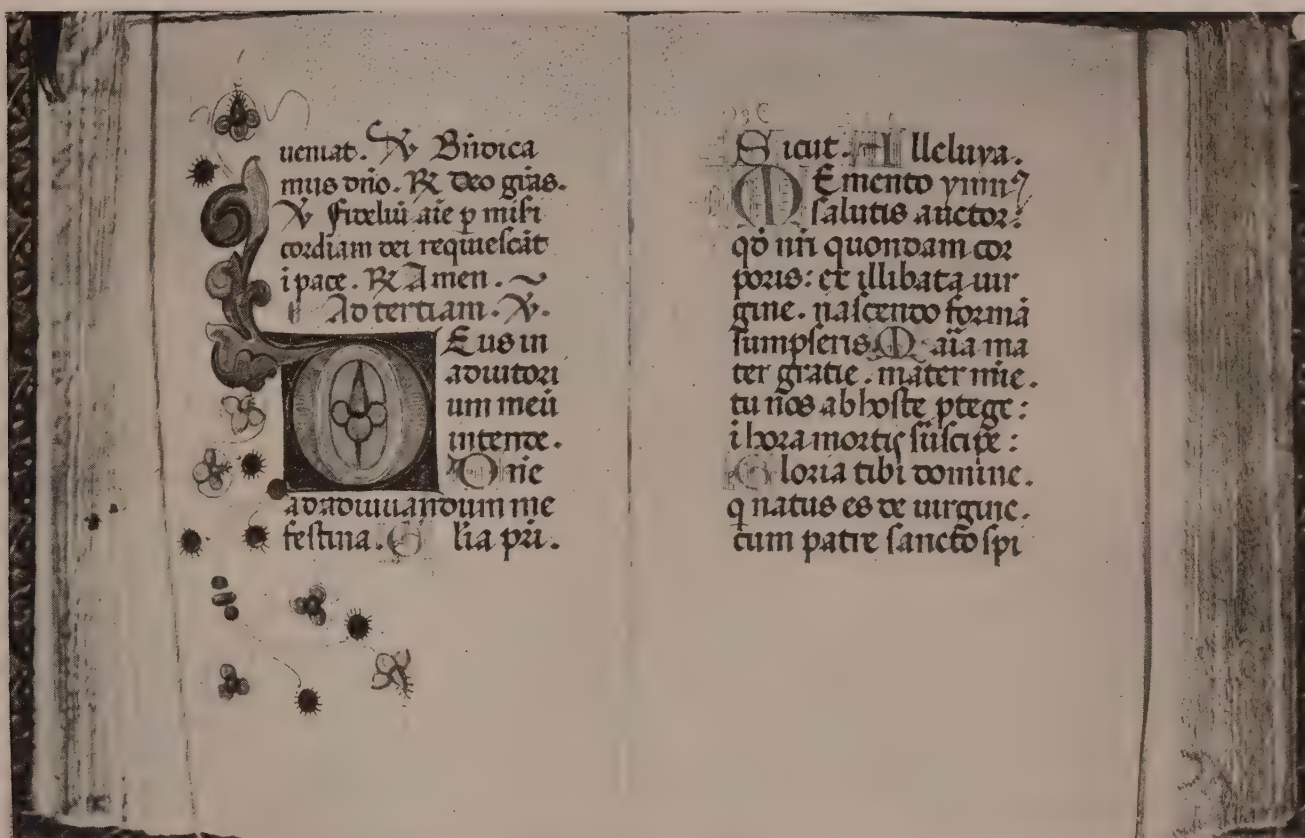 ueniat. ℣ Bn̄dica
mus dn̄o. ℟ Deo grās.
℣ Fideliū aīe ꝑ misi
cordiam dei requiescāt
ī pace. ℟ Amen.
Ad tertiam. ℣.
DEus in
adiutori
um meū
intende.
Dn̄e
ad adiuuandum me
festina. Glīa pr̄i.
Sicut. Alleluya.
MEmento ynniꝰ
salutis auctor:
qd̄ nr̄i quondam cor
poris: ex illibata uir
gine. nascendo formā
sumpseris. Maīa ma
ter gratie. mater mīe.
tu nos ab hoste ꝓtege:
ī hora mortis suscipe:
Gloria tibi domine.
q̄ natus es de uirgine.
cum patre sancto spi